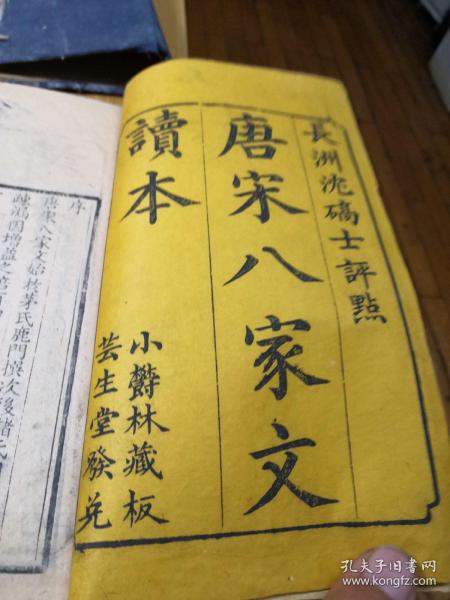 長洲沈碻士評點
唐宋八家文
讀本
小欝林藏板
芸生堂發兑
序
唐宋八家文始於茅氏鹿門撰次後儲氏
孔夫子旧书网
www.kongfz.com